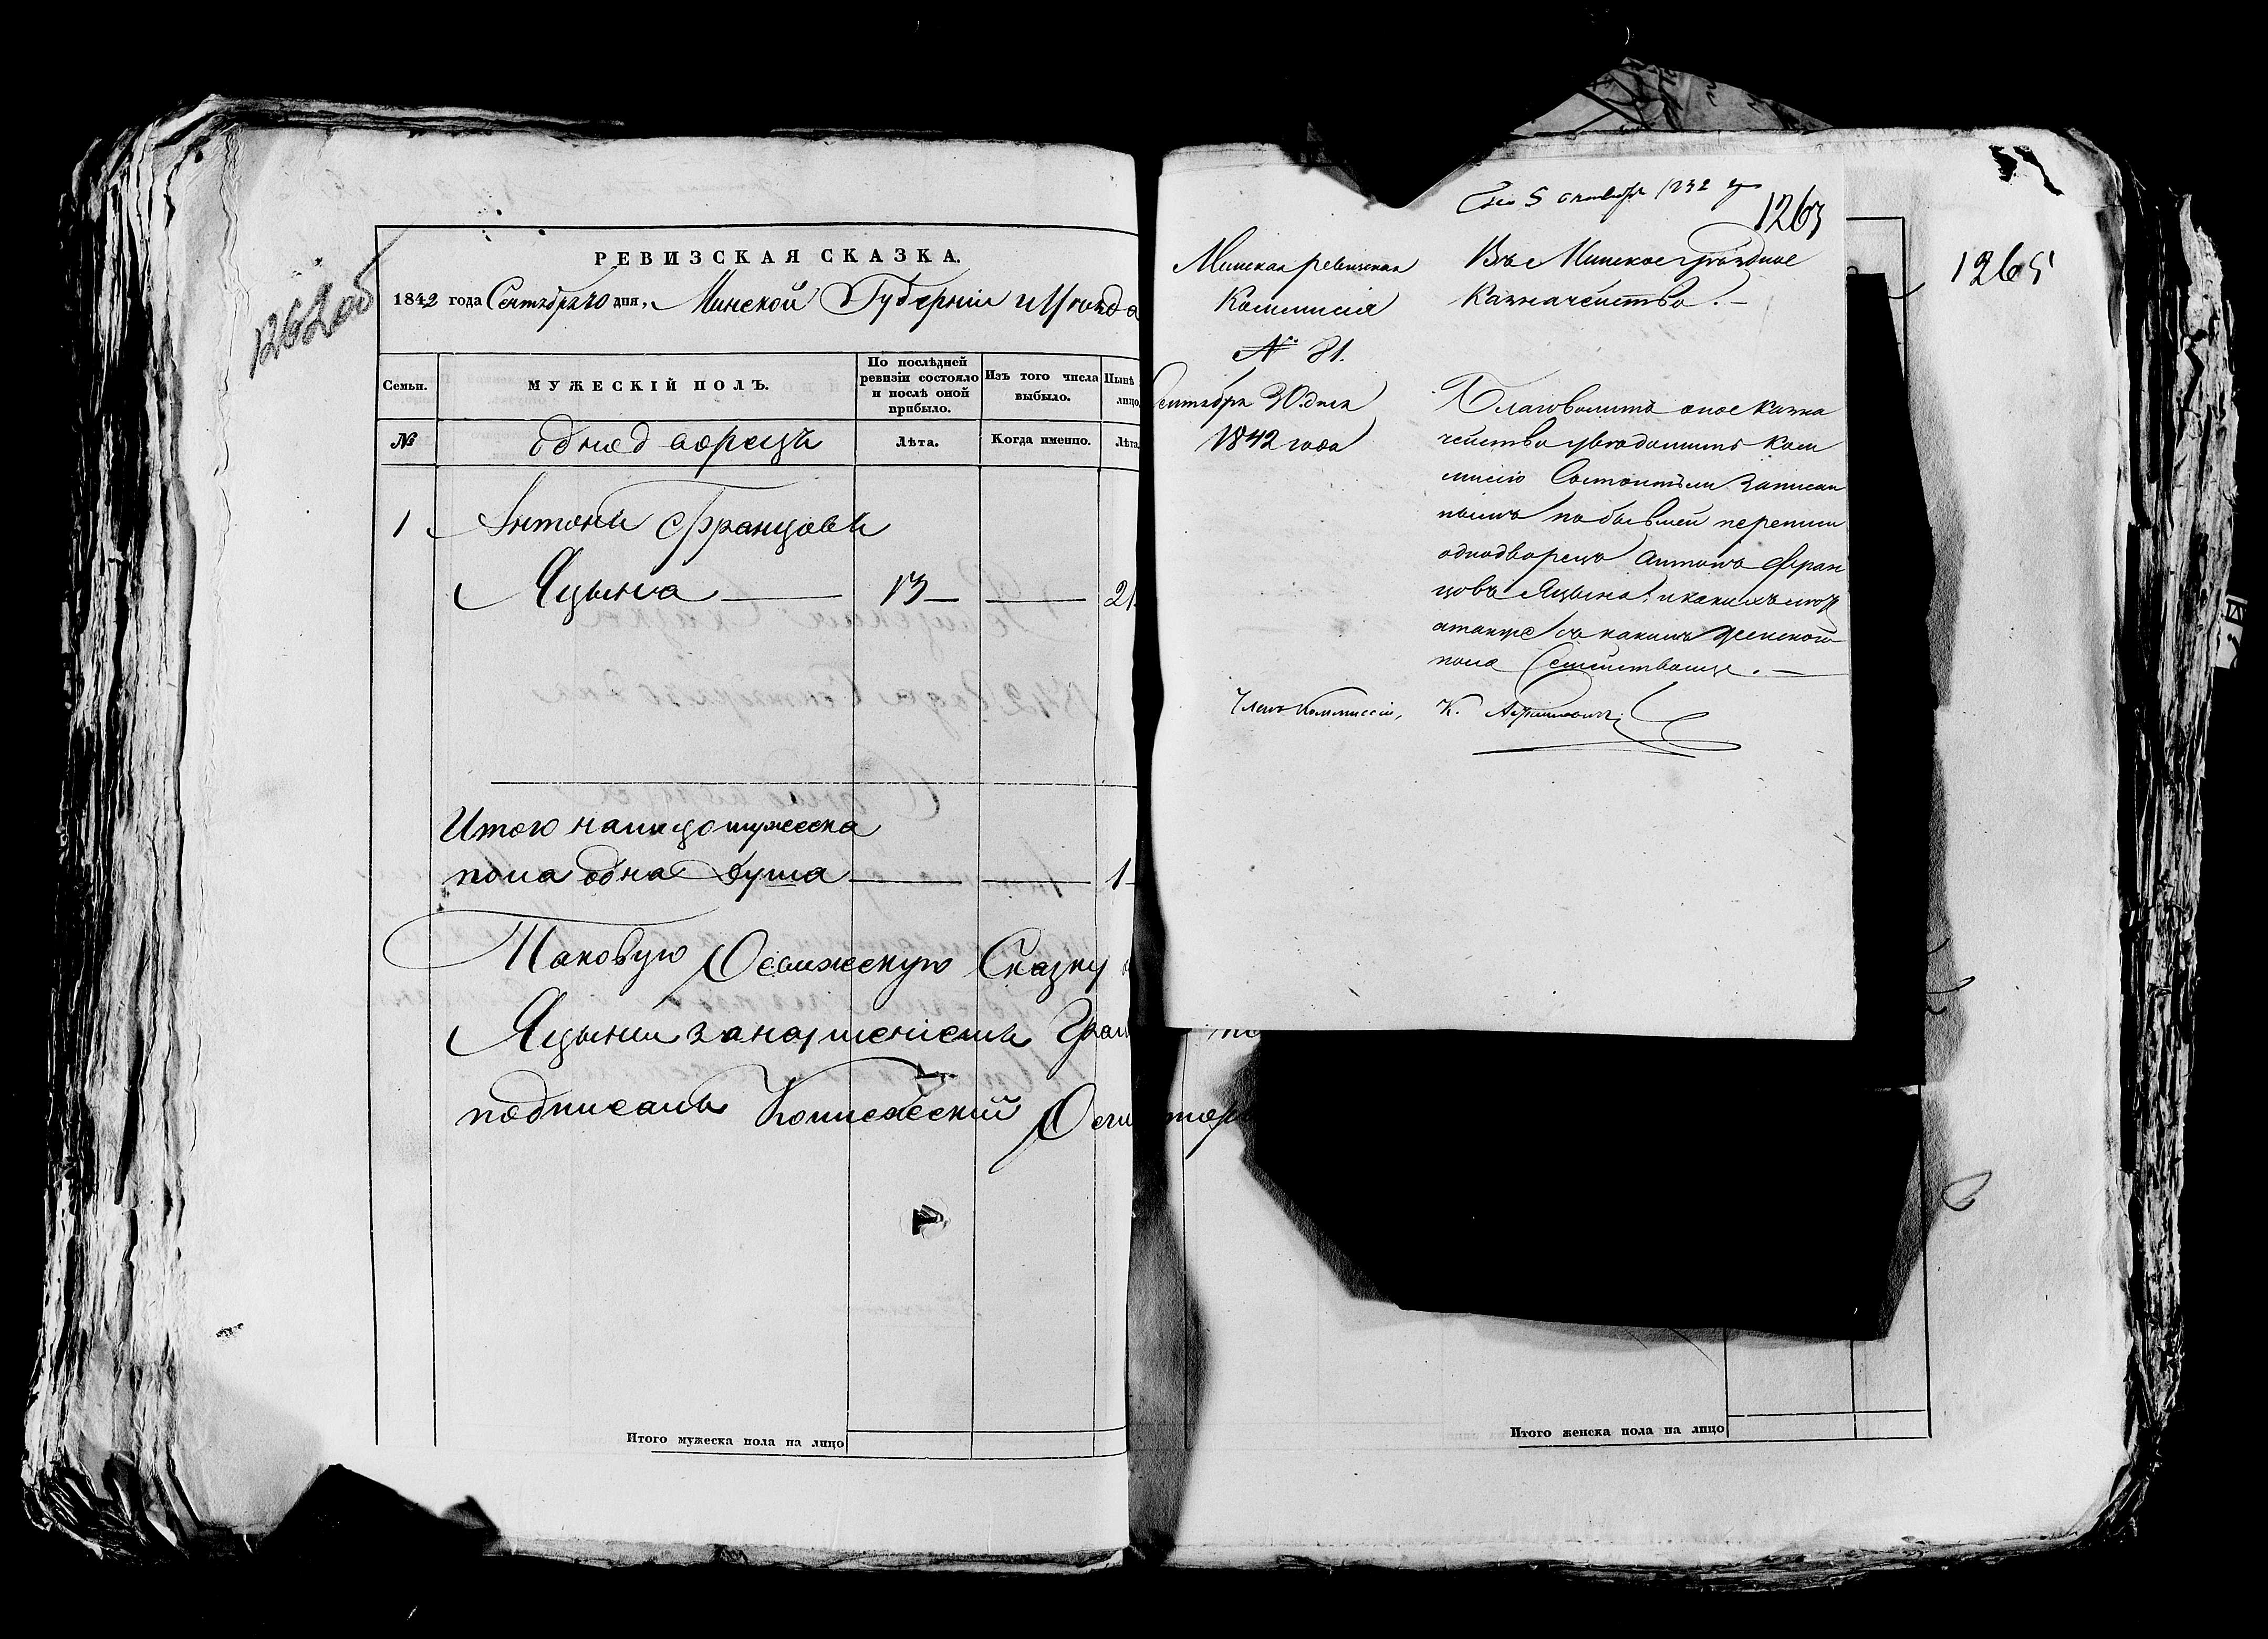 1262об
РЕВИЗСКАЯ СКАЗКА.
1842 года Сентября 30 дня, Минской Губерніи и Уѣзда
Семьи.
МУЖЕСКІЙ ПОЛЪ.
По послѣдней ревизіи состояло и послѣ оной прибыло.
Изъ того числа выбыло.
Нынѣ лицо
№
однодворецъ
Лѣта.
Когда именно.
Лѣта
1
Антонъ Францовъ
Яцына
13
21
Итого налицо мужеска
пола одна душа
1
Таковую Ревижскую Сказку
Яцыны занеумѣніемъ Грам
подписалъ Колежескій Реги
Итого мужеска пола на лицо
5 октября
1263
Минская ревизская
Коммисія
№ 81.
Сентября 30. дня
1842 года
Въ Минское уѣздное
Казначейство.
Благоволитъ оное казна
чейство увѣдомить Ком
мисію Состоитъ ли записан
нымъ по бывшей переписи
однодворецъ Антонъ Фран
цовъ Яцына, и
а также съ какимъ женскаго
пола Семействомъ.
Членъ Коммиссіи, К.
1265
тор
Итого женска пола на лицо